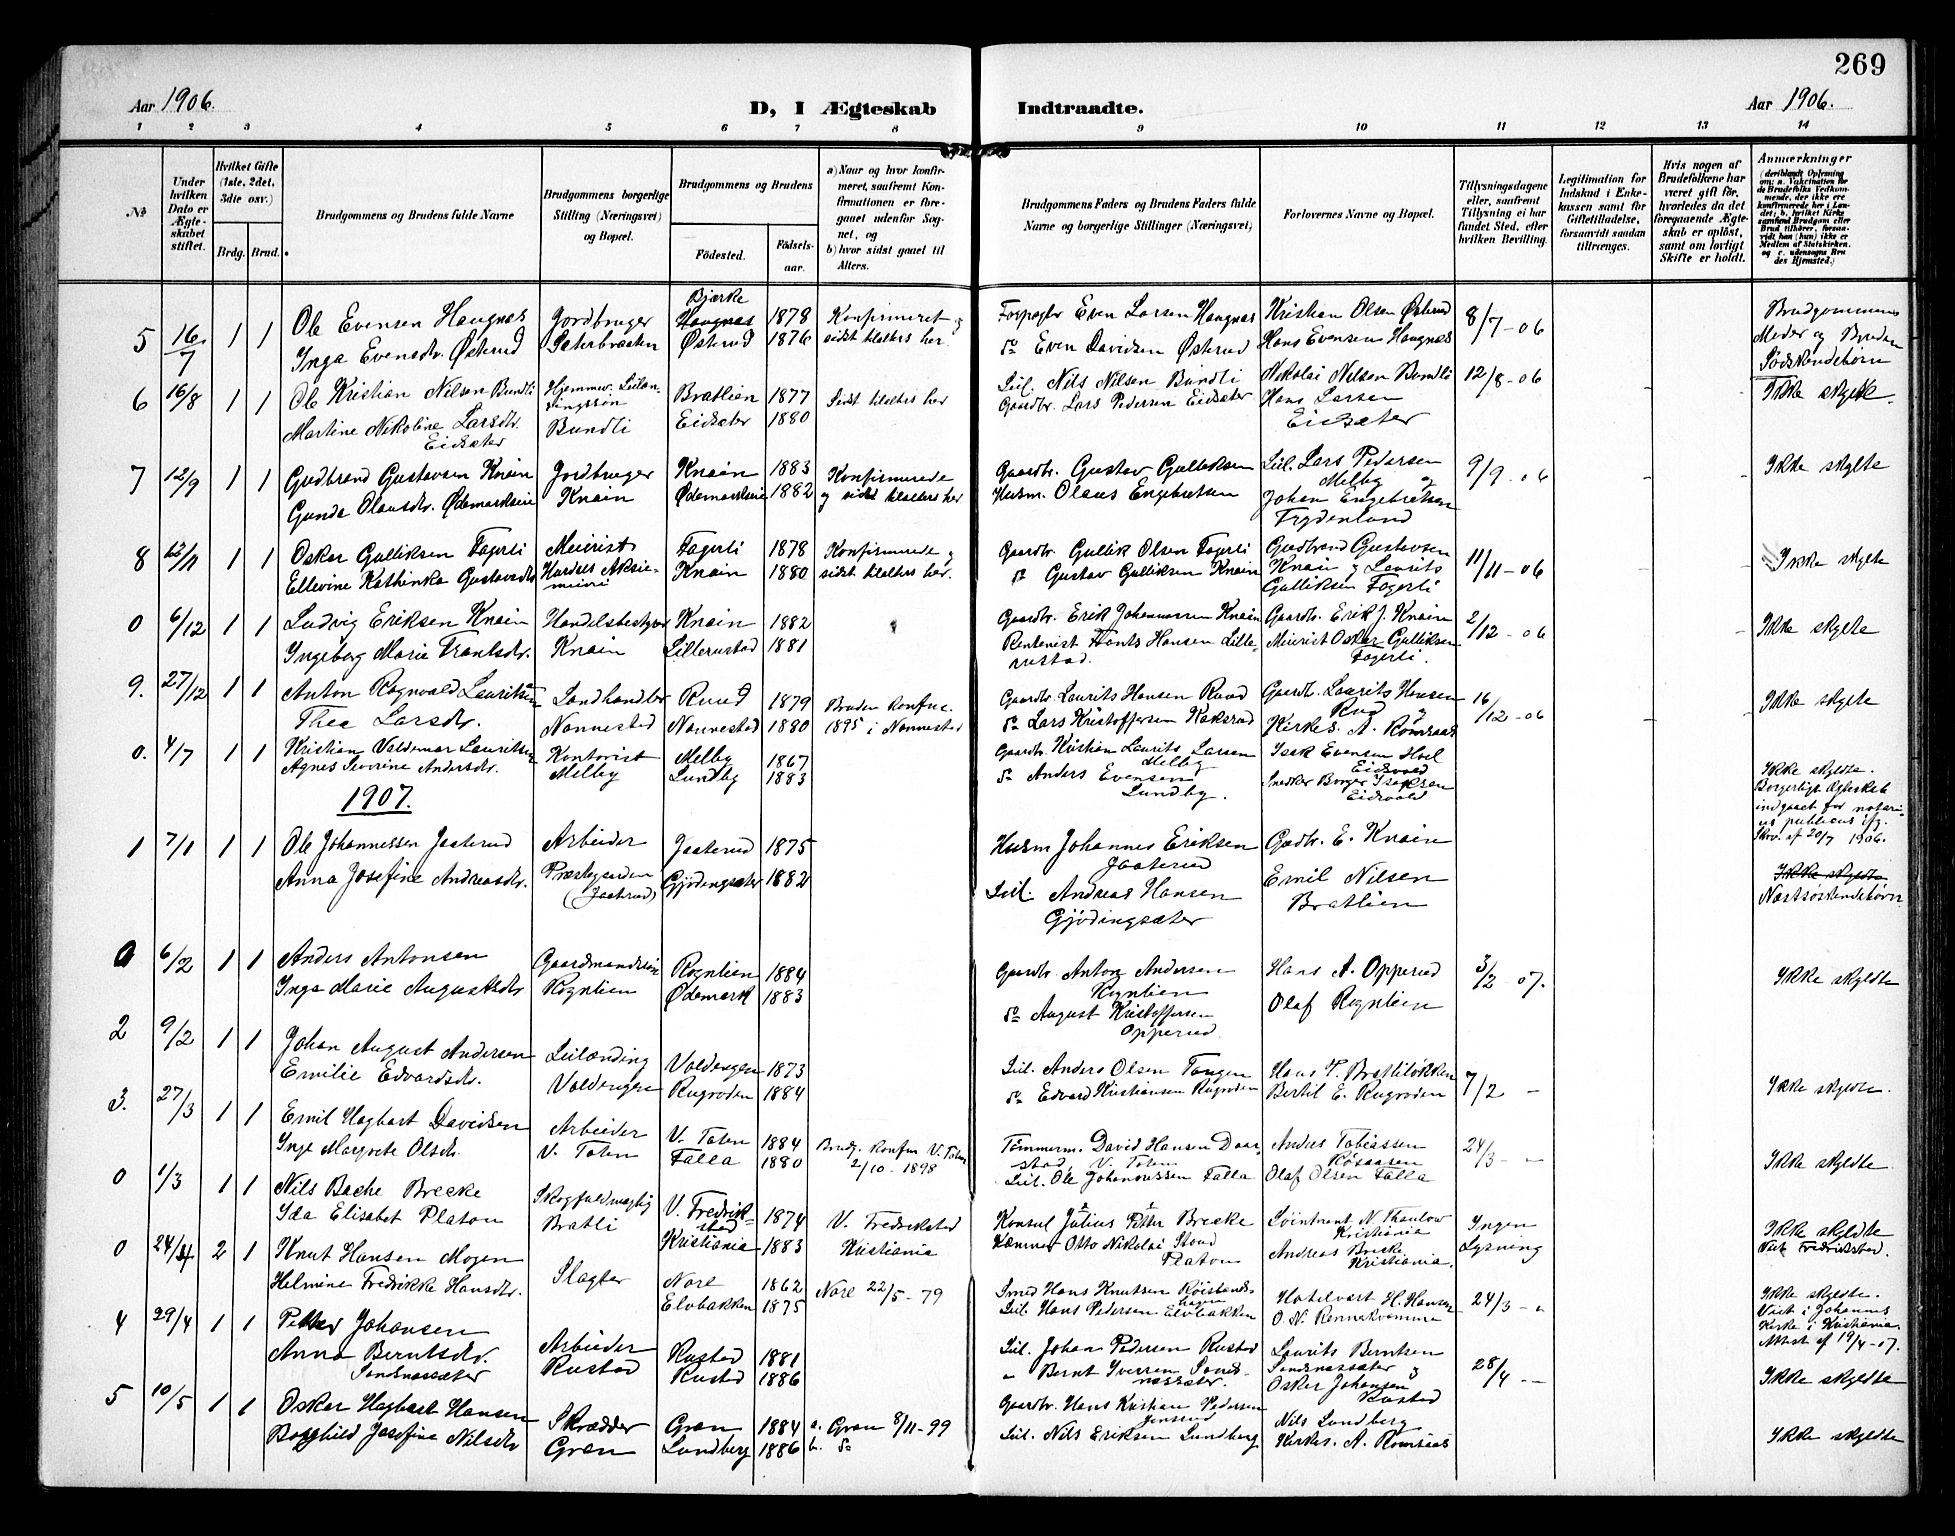 269
Aar 1906.
D, I Ægteskab Indtraadte.
Aar 1906.
1 2 3 4 5 6 7 8 9 10 11 12 13 14
№
Under hvilken Dato er Ægteskabet stiftet.
Hvilket Gifte (1ste, 2det, 3die osv.)
Brdg. Brud.
Brudgommens og Brudens fulde Navne
Brudgommens borgerlige Stilling (Næringsvei) og Bopæl.
Brudgommens og Brudens
Fødested.
Fødselsaar.
a) Naar og hvor konfirmeret, saafremt Konfirmationen er foregaaet udenfor Sognet, og
b) hvor sidst gaaet til Alters.
Brudgommens Faders og Brudens Faders fulde Navne og borgerlige Stillinger (Næringsvei)
Forlovernes Navne og Bopæl.
Tillysningsdagene eller, saafremt Tillysning ei har fundet Sted, efter hvilken Bevilling.
Legitimation for Indskud i Enkekassen samt for Giftetilladelse, forsaavidt saadan tiltrænges.
Hvis nogen af Brudefolkene har været gift før, hvorledes da det foregaaende Ægteskab er opløst, samt om lovligt Skifte er holdt.
Anmærkninger
5 16/7 1 1 Ole Evensen Haugnæs Jordbruger Bjærke Haugnæs 1878 Konfirmeret og Even Larsen Haugnæs Kristian Olsen Østerud 8/7-06 Brudgommens
Inga Evensdr. Østerud Sæterbraaten Østerud 1876 sidst tilalters her. do Even Davidsen Østerud Hans Evensen Haugnæs Moder og Bruden
Sødskendebørn
6 16/8 1 1 Ole Kristian Nilsen Bundli Bratlien 1877 Sidst tilalters her Leil. Nils Nilsen Bundli Nikolai Nilsen Bundli 12/8-06 Ikke skyldt.
Martine Nikoline Larsdr. Bundli Eidsæter 1880 Gaardbr. Lars Pedersen Eidsæter Hans Larsen
Eidsæter Eidsæter
7 12/9 1 1 Gudbrand Gustavsen Knain Jordbruger Knain 1883 Konfirmerede Gaardbr. Gustav Gulliksen Leil. Lars Pedersen 9/9-06 Ikke skyldte
Gunda Olausdr. Ødemarkseie Knain Ødemarkseie 1882 og sidst tilalters her Husm. Olaus Engebretsen Melby og
Johan Engebretsen
Frydenlund
8 12/11 1 1 Oskar Gulliksen Fagerli Meierist Fagerli 1878 Konfirmerede og Gaardbr. Gullik Olsen Fagerli Gudbrand Gustavsen 11/11-06 Ikke skyldte
Ellevine Kathinka Gustavsdr. Hurdals Aksiemeieri Knain 1880 sidst tilalters her. do Gustav Gulliksen Knain Knain og Laurits
Gulliksen Fagerli
0 6/12 1 1 Ludvig Eriksen Knain Handelsbestyrer Knain 1882 Gaardbr. Erik Johannessen Knain Gaardbr. Erik J. Knain 2/12-06 Ikke skyldte
Ingeborg Marie Frantsdr. Knain Lillerustad 1881 Rentenist Frants Hansen Lillerustad. Meierist Oskar Gulliksen
Fagerli.
9. 27/12 1 1 Anton Ragnvald Lauritsen Landhandler Ruud 1879 Bruden Konfirm. Gaardbr. Laurits Hansen Ruud Gaardbr. Laurits Hansen 16/12-06 Ikke skyldte
Thea Larsdr. Nannestad Nannestad 1880 1895 i Nannestad do Lars Kristoffersen Kaksrud Rud og
Kirkes. A. Romsaas
0. 4/7 1 1 Kristian Valdemar Lauritsen Kontorist Melby 1867 Gaardbr. Kristian Laurits Larsen Isak Evensen Hoel
Agnes Severine Andersdr. Melby Lundby 1883 Melby Eidsvold
do Anders Evensen Lundby. Snedker Borger Isaksen Eidsvold
Ikke skyldte.
Borgerligt Ægteskab
indgaaet for notarius publicus ifg.
Skr. af 20/7 1906.
1907.
1 7/1 1 1 Ole Johannessen Jaaterud Arbeider Jaaterud 1875 Husm Johannes Eriksen Gaardbr. E. Knain
Anna Josefine Andreasdr. Præstegaarden Gjødingsæter 1882 Jaaterud Emil Nilsen Ikke skyldte
(Jaaterud) Leil. Andreas Hansen Bratlien Næstsøskendebørn
Gjødingsæter
0 6/2 1 1 Anders Antonsen Gaardmandssøn Rognlien 1884 Gaardbr. Anton Andersen Hans A. Opperud 3/2-07. Ikke skyldte
Inga Marie Augustsdr. Rognlien Ødemark 1883 Rognlien Olaf Rognlien
do August Kristoffersen
Opperud.
2 9/2 1 1 Johan August Andersen Leilænding Valdengen 1873 Leil. Anders Olsen Tangen Hans P. Brattiløkken 7/2 - Ikke skyldte
Emilie Edvardsdr. Valdengen Rugroden 1884 do Edvard Kristiansen Rugroden Bertil E. Rugroden
3. 27/3 1 1 Emil Hagbart Davidsen Arbeider V. Toten 1884 Brudg. Konfirm V. Toten Tømmerm. David Hansen Anders Tobiassen 24/3 - Ikke skyldte
Inge Margrete Olsdr. V. Toten Falla 1880 2/10-1898 V. Toten Røsaasen
Leil. Ole Johannessen Falla Olaf Olsen Falla
0 1/3 1 1 Nils Bache Brecke Skogfuldmægtig V. Fredrikstad 1874 V. Fredrikstad Konsul Julius Petter Brecke Løitnant N. Thaulow Ingen Ikke skyldte
Ida Elisabet Platou Bratli Kristiania 1883 Kristiania Kæmner Otto Nikolai Stoud Kristiania Lysning Viet Fredrikstad.
Platou Andreas Brecke Kristiania.
0 24/4 2 1 Knut Hansen Mogen Slagter Nore 1862 Nore 22/5-79 Smed Hans Knutsen Hotelvært H. Hansen 24/3-" Ikke skyldte.
Helmine Fredrikke Hansdr. Elvbakken 1875 Leil. Hans Pedersen Elvbakken O. N. Rennekvamme Viet i Johannes
Kirke i Kristiania.
Attest af 19/4-07.
4 29/4 1 1 Petter Johansen Arbeider Rustad 1881 Leil. Johan Pedersen Rustad Laurits Berntsen 28/4 -- Ikke skyldte
Anna Berntsdr. Rustad Rustad 1886 " Bernt Iversen Sandsnæssæter. Sandsnæssæter og
Sandsnæssæter Oskar Johansen
Rustad
5 10/5 1 1 Oskar Hagbart Hansen Skrædder Gran 1884 a. Gran 8/11-99 Gaardbr. Hans Kristian Pedersen Nils Lundberg
Borghild Josefine Nilsdr. Gran Lundberg 1886 b. do Leil. Nils Eriksen Lundberg Kirkes. A. Romsaas Ikke skyldte